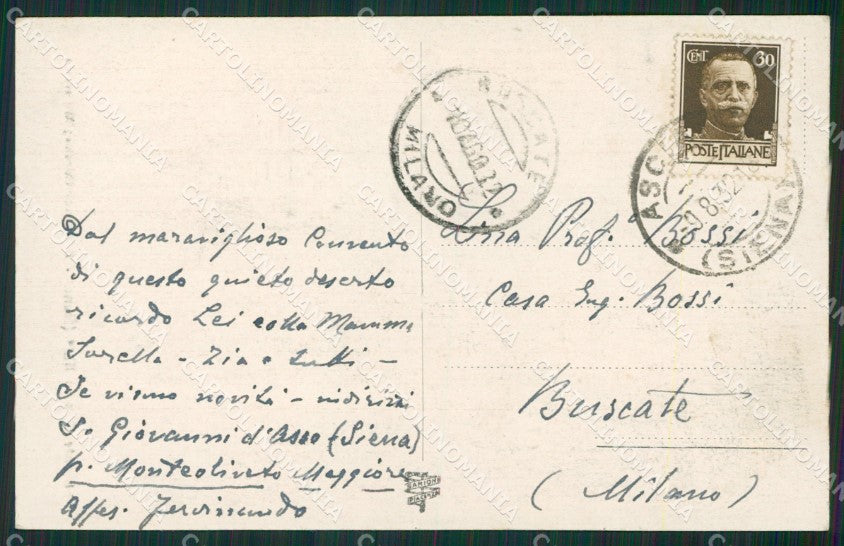 Dal maraviglioso Convento
di questo quieto deserto
ricordo Lei colla Mamma
Sorella - Zia e tutti -
Se vi sono novità - indirizzi
S. Giovanni d'Asso (Siena)
p. Monteoliveto Maggiore
Affes. Ferdinando
BUSCATE
MILANO
CENT 30
POSTE ITALIANE
ASC
8.32
(SIENA)
Sna Prof. Bossi
Casa Ing. Bossi
Buscate
(Milano)
CARTOLINOMANIA